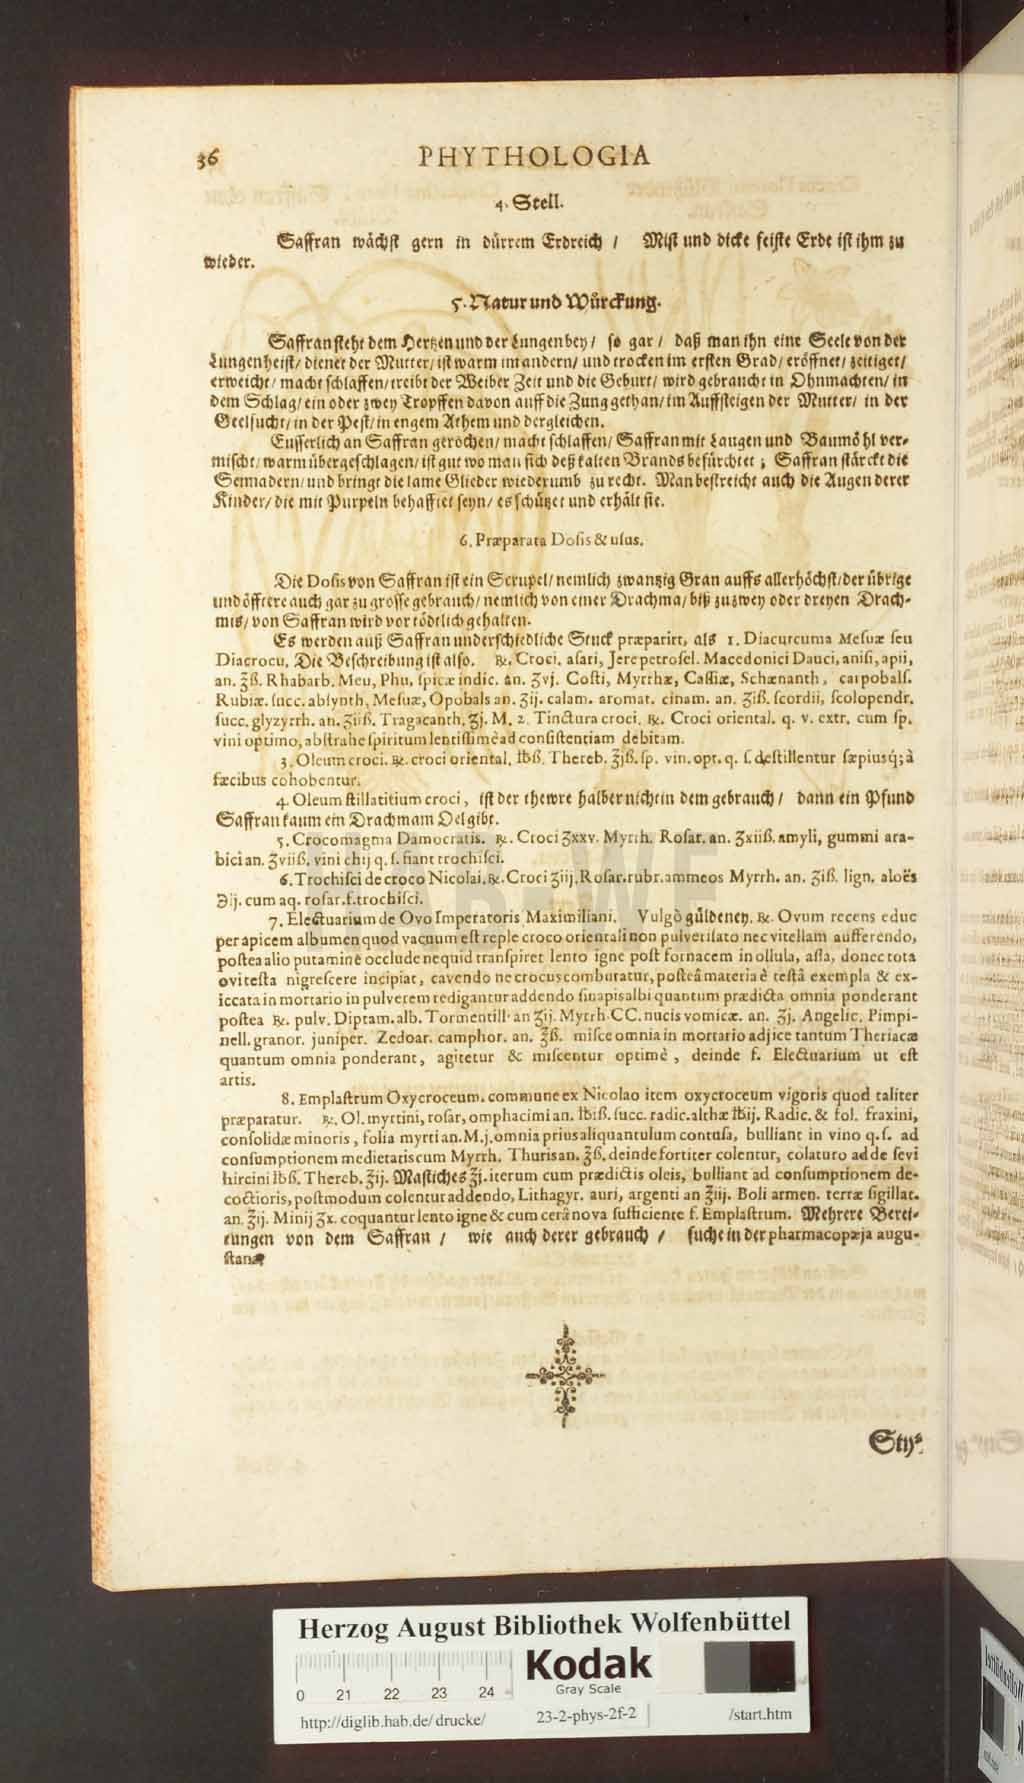 36 PHYTHOLOGIA
4. Stell.
Saffran wächst gern in dürrem Erdreich / Mist und dicke feiste Erde ist ihm zu
wieder.
5. Natur und Würckung.
Saffran steht dem Hertzen und der Lungen bey / so gar / daß man ihn eine Seele von der
Lungen heist / dienet der Mutter / ist warm im andern / und trocken im ersten Grad / eröffnet / zeitiget /
erweicht / macht schlaffen / treibt der Weiber Zeit und die Geburt / wird gebraucht in Ohnmachten / in
dem Schlag / ein oder zwey Tropffen davon auff die Zung gethan / im Auffsteigen der Mutter / in der
Geelsucht / in der Pest / in engem Athem und dergleichen.
Eusserlich an Saffran gerochen / macht schlaffen / Saffran mit Laugen und Baumöhl ver-
mischt / warm übergeschlagen / ist gut wo man sich deß kalten Brands befürchtet ; Saffran stärckt die
Sennadern / und bringt die lame Glieder wiederumb zu recht. Man bestreicht auch die Augen derer
Kinder / die mit Purpeln behafftet seyn / es schützet und erhält sie.
6. Præparata Dosis & usus.
Die Dosis von Saffran ist ein Scrupel / nemlich zwantzig Gran auffs allerhöchst / der übrige
und öfftere auch gar zu grosse gebrauch / nemlich von einer Drachma / biß zu zwey oder dreyen Drach-
mis / von Saffran wird vor tödtlich gehalten.
Es werden auß Saffran underschiedliche Stuck præparirt, als 1. Diacurcuma Mesuæ seu
Diacrocu. Die Beschreibung ist also. ℞. Croci, asari, Jere petrosel. Macedonici Dauci, anisi, apii,
an. ℥ß. Rhabarb. Meu, Phu, spicæ indic. an. ʒvj. Costi, Myrrhæ, Cassiæ, Schænanth, carpobals.
Rubiæ. succ. absynth, Mesuæ, Opobals an. ʒij. calam. aromat. cinam. an. ʒiß. scordii, scolopendr.
succ. glyzyrrh. an. ʒiiß. Tragacanth. ʒj. M. 2. Tinctura croci. ℞. Croci oriental. q. v. extr. cum sp.
vini optimo, abstrahe spiritum lentissimè ad consistentiam debitam.
3. Oleum croci. ℞. croci oriental. ℔ß. Thereb. ℥jß. sp. vin. opt. q. s. destillentur sæpiusq́; à
fæcibus cohobentur.
4. Oleum stillatitium croci, ist der thewre halber nicht in dem gebrauch / dann ein Pfund
Saffran kaum ein Drachmam Oel gibt.
5. Crocomagma Damocratis. ℞. Croci ʒxxv. Myrrh. Rosar. an. ʒxiiß. amyli, gummi ara-
bici an. ʒviiß. vini chij q. s. fiant trochisci.
6. Trochisci de croco Nicolai. ℞. Croci ʒiij. Rosar. rubr. ammeos Myrrh. an. ʒiß. lign. aloës
℈ij. cum aq. rosar. f. trochisci.
7. Electuarium de Ovo Imperatoris Maximiliani. Vulgò güldeney. ℞. Ovum recens educ
per apicem albumen quod vacuum est reple croco orientali non pulverisato nec vitellam aufferendo,
postea alio putamine occlude nequid transpiret lento igne post fornacem in ollula, assa, donec tota
ovi testa nigrescere incipiat, cavendo ne crocus comburatur, posteâ materia è testâ exempla & ex-
iccata in mortario in pulverem redigantur addendo sinapis albi quantum prædicta omnia ponderant
postea ℞. pulv. Diptam. alb. Tormentill. an ʒij. Myrrh CC. nucis vomicæ. an. ʒj. Angelic. Pimpi-
nell. granor. juniper. Zedoar. camphor. an. ʒß. misce omnia in mortario adjice tantum Theriacæ
quantum omnia ponderant, agitetur & miscentur optimè, deinde f. Electuarium ut est
artis.
8. Emplastrum Oxycroceum. commune ex Nicolao item oxycroceum vigoris quod taliter
præparatur. ℞. Ol. myrtini, rosar, omphacimi an. ℔iß. succ. radic. althæ ℔ij. Radic. & fol. fraxini,
consolidæ minoris, folia myrti an. M.j. omnia prius aliquantulum contusa, bulliant in vino q. s. ad
consumptionem medietatis cum Myrrh. Thuris an. ℥ß. deinde fortiter colentur, colaturo adde sevi
hircini ℔ß. Thereb. ℥ij. Mastiches ℥j. iterum cum prædictis oleis, bulliant ad consumptionem de-
coctioris, postmodum colentur addendo, Lithagyr. auri, argenti an ℥iij. Boli armen. terræ sigillat.
an. ℥ij. Minij ʒx. coquantur lento igne & cum cerâ nova sufficiente f. Emplastrum. Mehrere Berei-
tungen von dem Saffran / wie auch derer gebrauch / suche in der pharmacopæja augu-
stana
Sty-
Herzog August Bibliothek Wolfenbüttel
Kodak
Gray Scale
0 21 22 23 24
http://diglib.hab.de/drucke/ 23-2-phys-2f-2 /start.htm